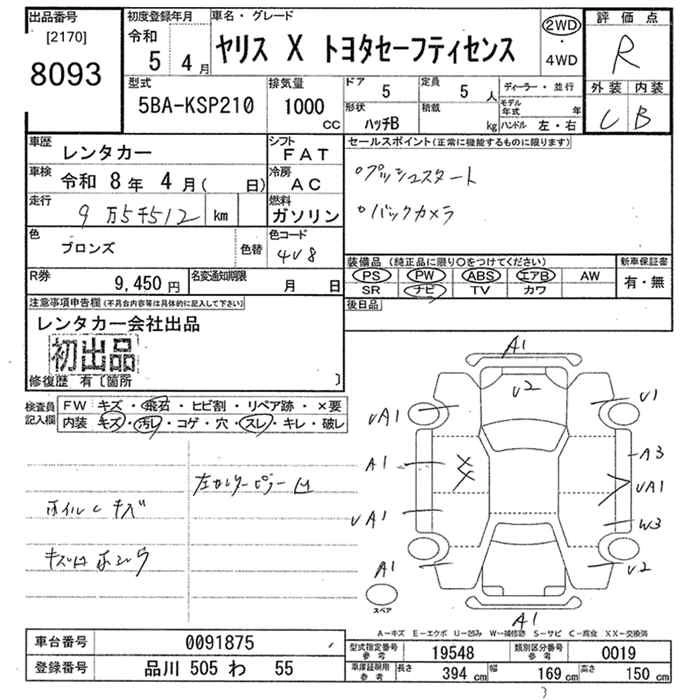 出品番号
[2170]
8093
初度登録年月
令和
5 4月
車名・グレード
ヤリス X トヨタセーフティセンス
2WD
・
4WD
評価点
R
外装 内装
C B
型式
5BA-KSP210
排気量
1000
CC
ドア
5
定員
5 人
形状
ハッチB
積載
kg
ディーラー・並行
モデル年式 年
ハンドル 左・右
車歴
レンタカー
シフト
FAT
車検
令和 8年 4月( 日)
冷房
AC
走行
9万5千512 km
燃料
ガソリン
色
ブロンズ
色替
色コード
4V8
R券
9,450円
名変通知期限
月 日
セールスポイント(正常に機能するものに限ります)
○プッシュスタート
○バックカメラ
装備品 (純正品に限り○をつけてください)
PS PW ABS エアB AW
SR ナビ TV カワ
新車保証書
有・無
後日品
注意事項申告欄(不具合内容等は具体的に記入して下さい)
レンタカー会社出品
初出品
修復歴 有〔箇所 〕
検査員
記入欄
FW キズ・飛石・ヒビ割・リペア跡・×要
内装 キズ・汚レ・コゲ・穴・スレ・キレ・破レ
左センターピラー凹
ホイルC キズ
A1
U2
UA1
U1
A1
A3
UA1
UA1
W3
A1
U2
スペア
A1
A-キズ E-エクボ U-凹み W-補修跡 S-サビ C-腐食 XX-交換済
車台番号
0091875
登録番号
品川 505 わ 55
型式指定番号
参考
19548
類別区分番号
参考
0019
車庫証明用
参考
長さ 394 cm
幅 169 cm
高さ 150 cm